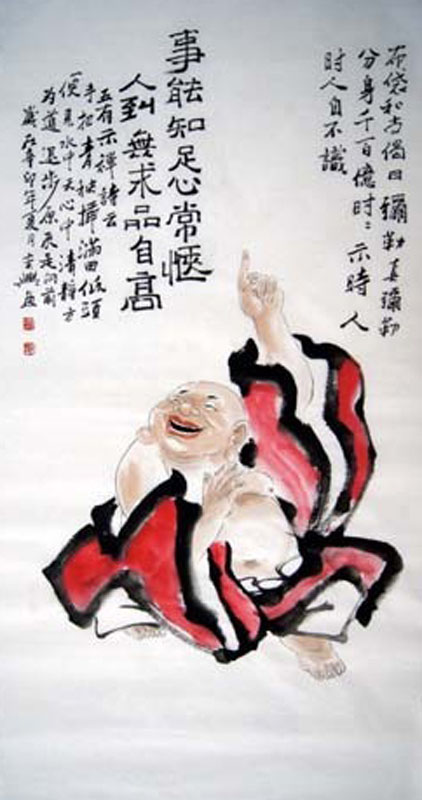 布袋和尚偈曰彌勒真彌勒
分身千百億時〻示時人
时人自不識
事能知足心常愜
人到無求品自高
又有示禪詩云
手把青秧插滿田低頭
便見水中天心中清靜方
为道退步原来是向前
歲在辛卯年夏月